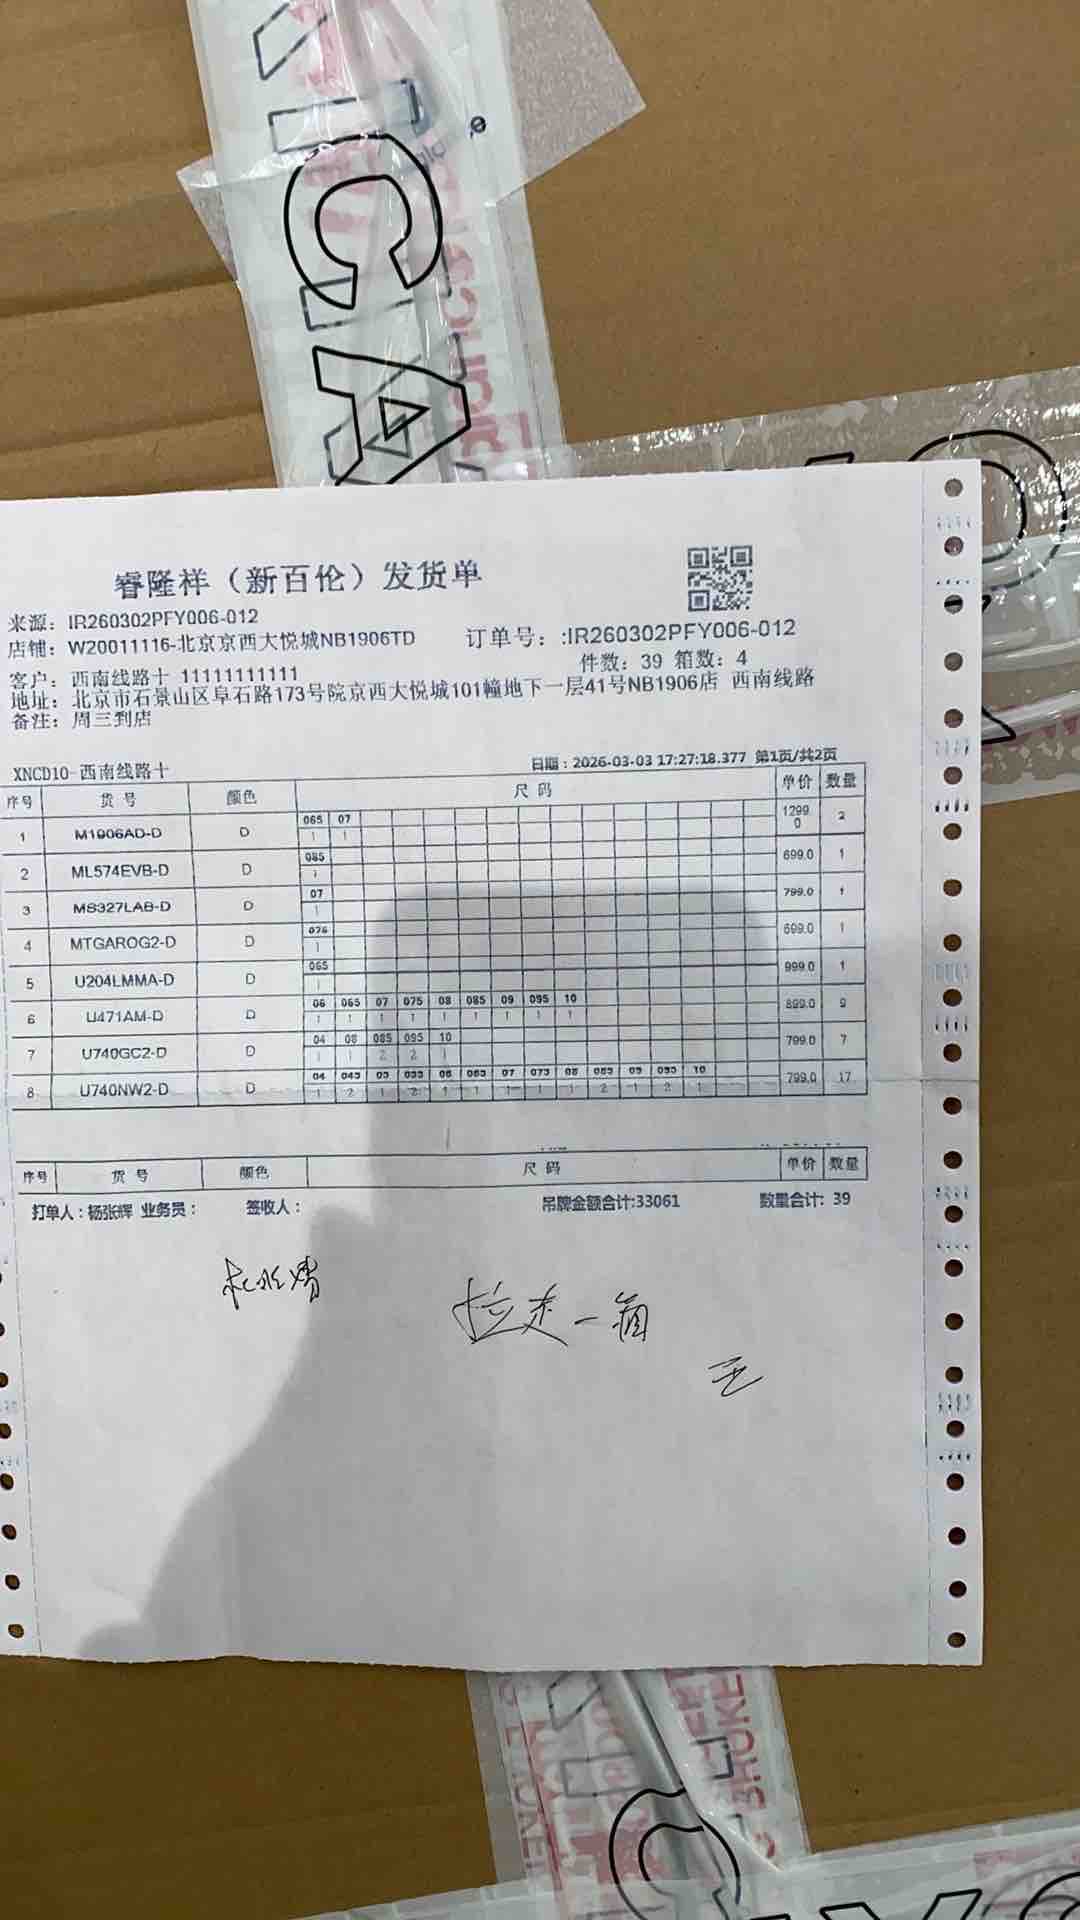 CA
睿隆祥（新百伦）发货单
来源：IR260302PFY006-012
店铺：W20011116-北京京西大悦城NB1906TD 订单号：:IR260302PFY006-012
件数：39 箱数：4
客户：西南线路十 11111111111
地址：北京市石景山区阜石路173号院京西大悦城101幢地下一层41号NB1906店 西南线路
备注：周三到店
XNCD10-西南线路十 日期：2026-03-03 17:27:18.377 第1页/共2页
序号 货号 颜色 尺码 单价 数量
065 07
1 M1906AD-D D 1 1 1299.0 2
085
2 ML574EVB-D D 1 699.0 1
07
3 MS327LAB-D D 1 799.0 1
075
4 MTGAROG2-D D 1 699.0 1
065
5 U204LMMA-D D 1 999.0 1
06 065 07 075 08 085 09 095 10
6 U471AM-D D 1 1 1 1 1 1 1 1 1 899.0 9
04 08 085 095 10
7 U740GC2-D D 1 1 2 2 1 799.0 7
04 045 05 055 06 065 07 075 08 085 09 095 10
8 U740NW2-D D 1 2 1 2 1 1 1 1 1 2 1 2 1 799.0 17
序号 货号 颜色 尺码 单价 数量
打单人：杨张辉 业务员： 签收人： 吊牌金额合计:33061 数量合计: 39
拉走一箱
王